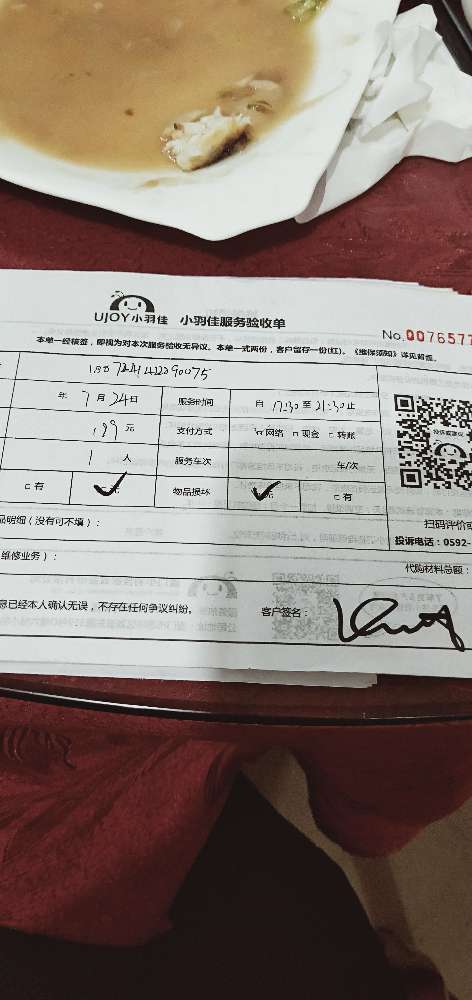 UJOY小羽佳 小羽佳服务验收单
No.0076577
本单一经核签，即视为对本次服务验收无异议。本单一式两份，客户留存一份(红)。《维保须知》详见背板。
年 7 月 24 日 服务时间 自 17:30 至 21:30 止
199 元 支付方式 网络 现金 转账
1 人 服务车次 车/次
有 无 物品损坏 无 有
投诉或建议
扫码评价或
品明细（没有可不填）：
投诉电话：0592-
维修业务）：
代购材料总额：
息已经本人确认无误，不存在任何争议纠纷。 客户签名：